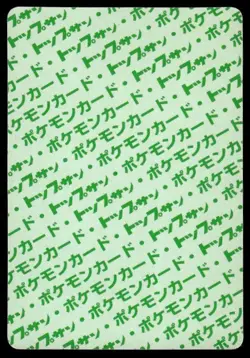 ポケモンカード・トップサン・
トップサン・ポケモンカード・
ポケモンカード・トップサン・ポケモン
トップサン・ポケモンカード・トップサン
ポケモンカード・トップサン・ポケモン
トップサン・ポケモンカード・トップサン
ポケモンカード・トップサン・ポケモン
トップサン・ポケモンカード・トップサン
ポケモンカード・トップサン・ポケモン
トップサン・ポケモンカード・
ポケモンカード・トップサン
・ポケモンカード